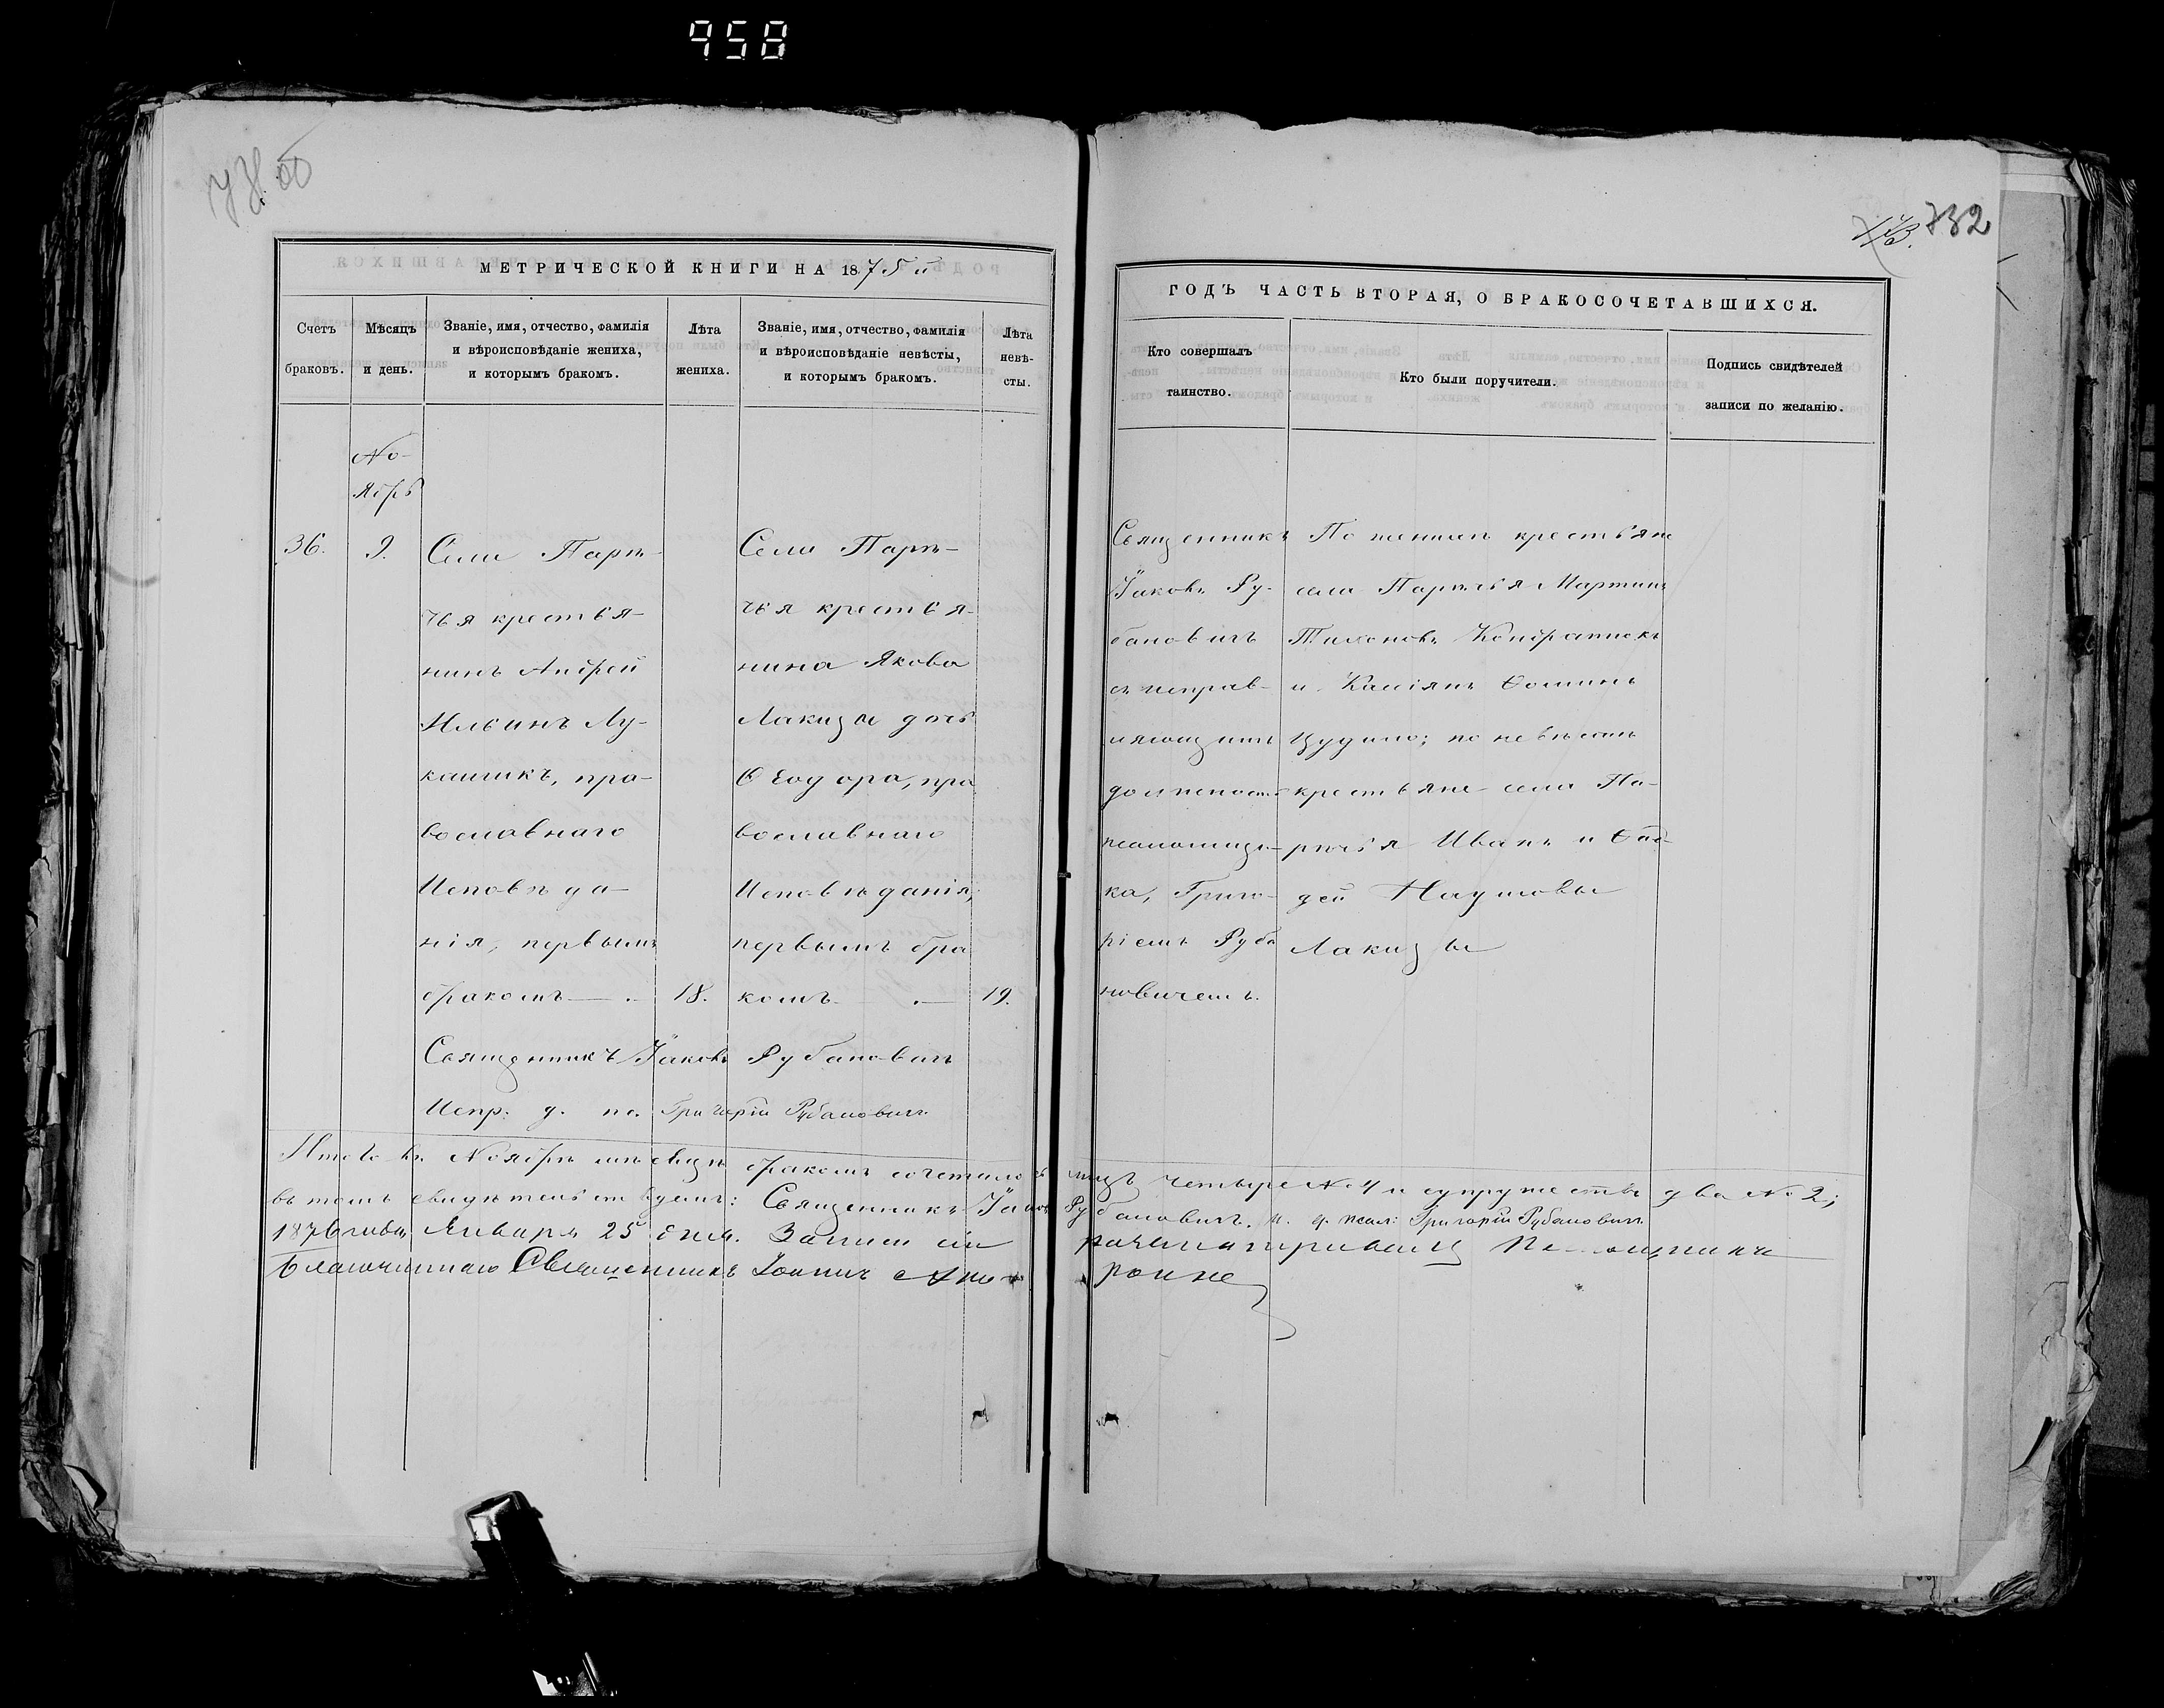 958
732
МЕТРИЧЕСКОЙ КНИГИ НА 1875й
ГОДЪ ЧАСТЬ ВТОРАЯ, О БРАКОСОЧЕТАВШИХСЯ.
Счетъ
браковъ.
Мѣсяцъ
и день.
Званіе, имя, отчество, фамилія
и вѣроисповѣданіе жениха,
и которымъ бракомъ.
Лѣта
жениха.
Званіе, имя, отчество, фамилія
и вѣроисповѣданіе невѣсты,
и которымъ бракомъ.
Лѣта
невѣ-
сты.
Кто совершалъ
таинство.
Кто были поручители.
Подпись свидѣтелей
записи по желанію.
Но-
ябрь
36.
9.
Села Парп-
чья крестья-
нинъ Андрей
Ильинъ Лу-
кашикъ, пра-
вославнаго
Исповѣда-
нія, первымъ
бракомъ
18.
Села Парп-
чья крестья-
нина Якова
Лакизы дочь
Ѳеодора, пра
вославнаго
Исповѣданія,
первымъ бра
комъ
19.
Священникъ
Іаковъ Ру-
бановичъ
съ исправ-
ляющимъ
должность
псаломщи-
ка, Григо-
ріемъ Руба
новичемъ.
По женихѣ крестьяне
села Мартинъ
Тихоновъ Кондратюкъ
и Касіянъ Ѳоминъ
по невѣстѣ
крестьяне села Па-
Иванъ и Ѳад-
дей Наумовы
Лакизы
Священникъ Іаковъ Рубановичъ
Испр. д. пс. Григорій Рубановичъ
Итого въ Ноябрѣ мѣсяцѣ бракомъ сочеталось лицъ четыре № 4 и супружествъ два № 2;
въ томъ свидѣтельствуемъ: Священникъ Іаковъ Рубановичъ. и. д. псал: Григорій Рубановичъ
1876 года Января 25 дня. Записи сіи
Благочинный Священникъ Іоаннъ